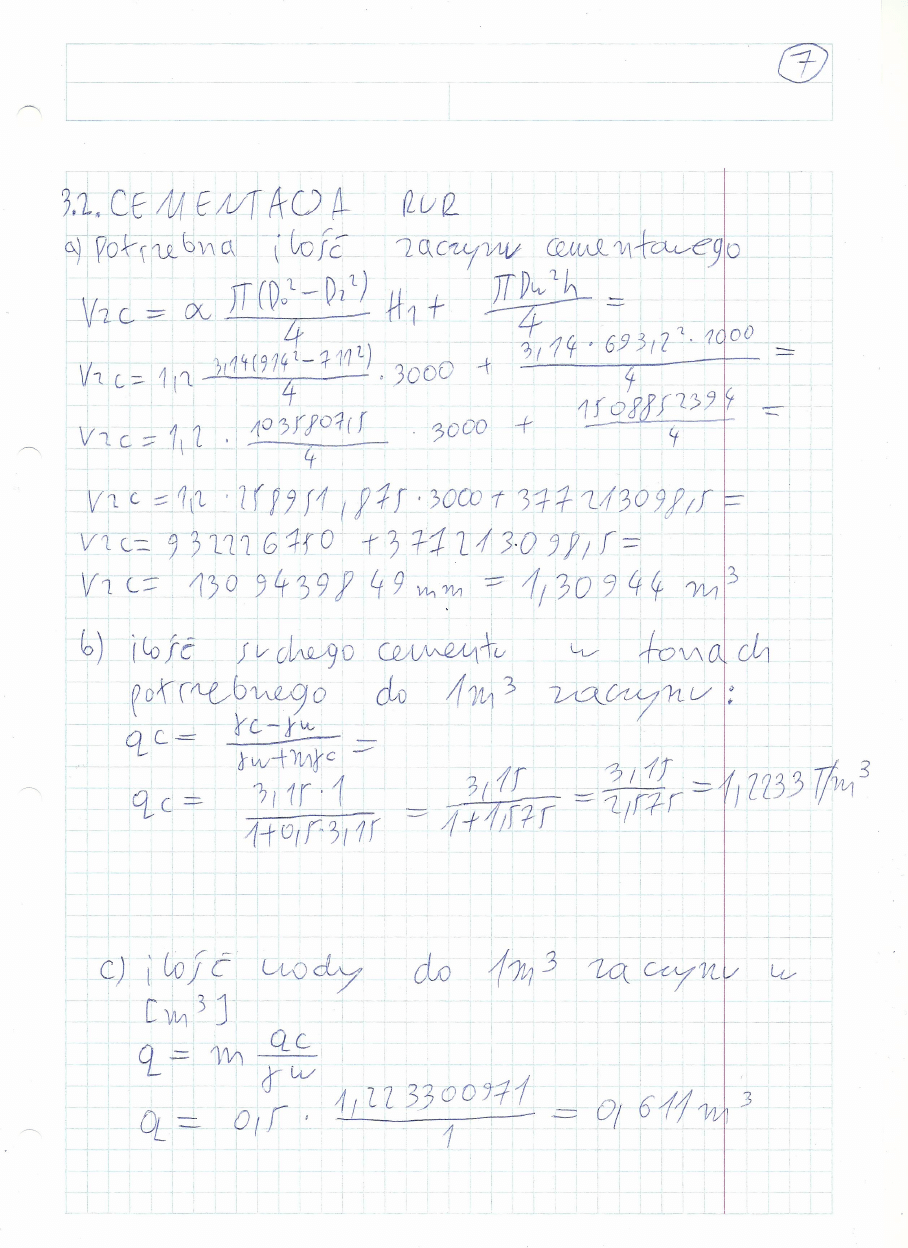 7
3.2. CEMENTACJA RUR
a) potrzebna ilość zaczynu cementowego
Vzc = α π(D₀² − D₂²)/4 H₁ + πDw²h/4 =
Vzc = 1,2 3,14(914² − 711²)/4 · 3000 + 3,14 · 693,2² · 1000/4 =
Vzc = 1,2 · 1035807,5/4 · 3000 + 1508852394/4 =
Vzc = 1,2 · 258951,875 · 3000 + 377213098,5 =
Vzc = 932226750 + 377213098,5 =
Vzc = 1309439849 mm = 1,30944 m³
b) ilość suchego cementu w tonach
potrzebnego do 1m³ zaczynu:
qc = γc − γw/γw + mγc =
qc = 3,15 · 1/1 + 0,5 · 3,15 = 3,15/1 + 1,575 = 3,15/2,575 = 1,2233 T/m³
c) ilość wody do 1m³ zaczynu w
[m³]
q = m qc/γw
q = 0,5 · 1,223300971/1 = 0,611 m³